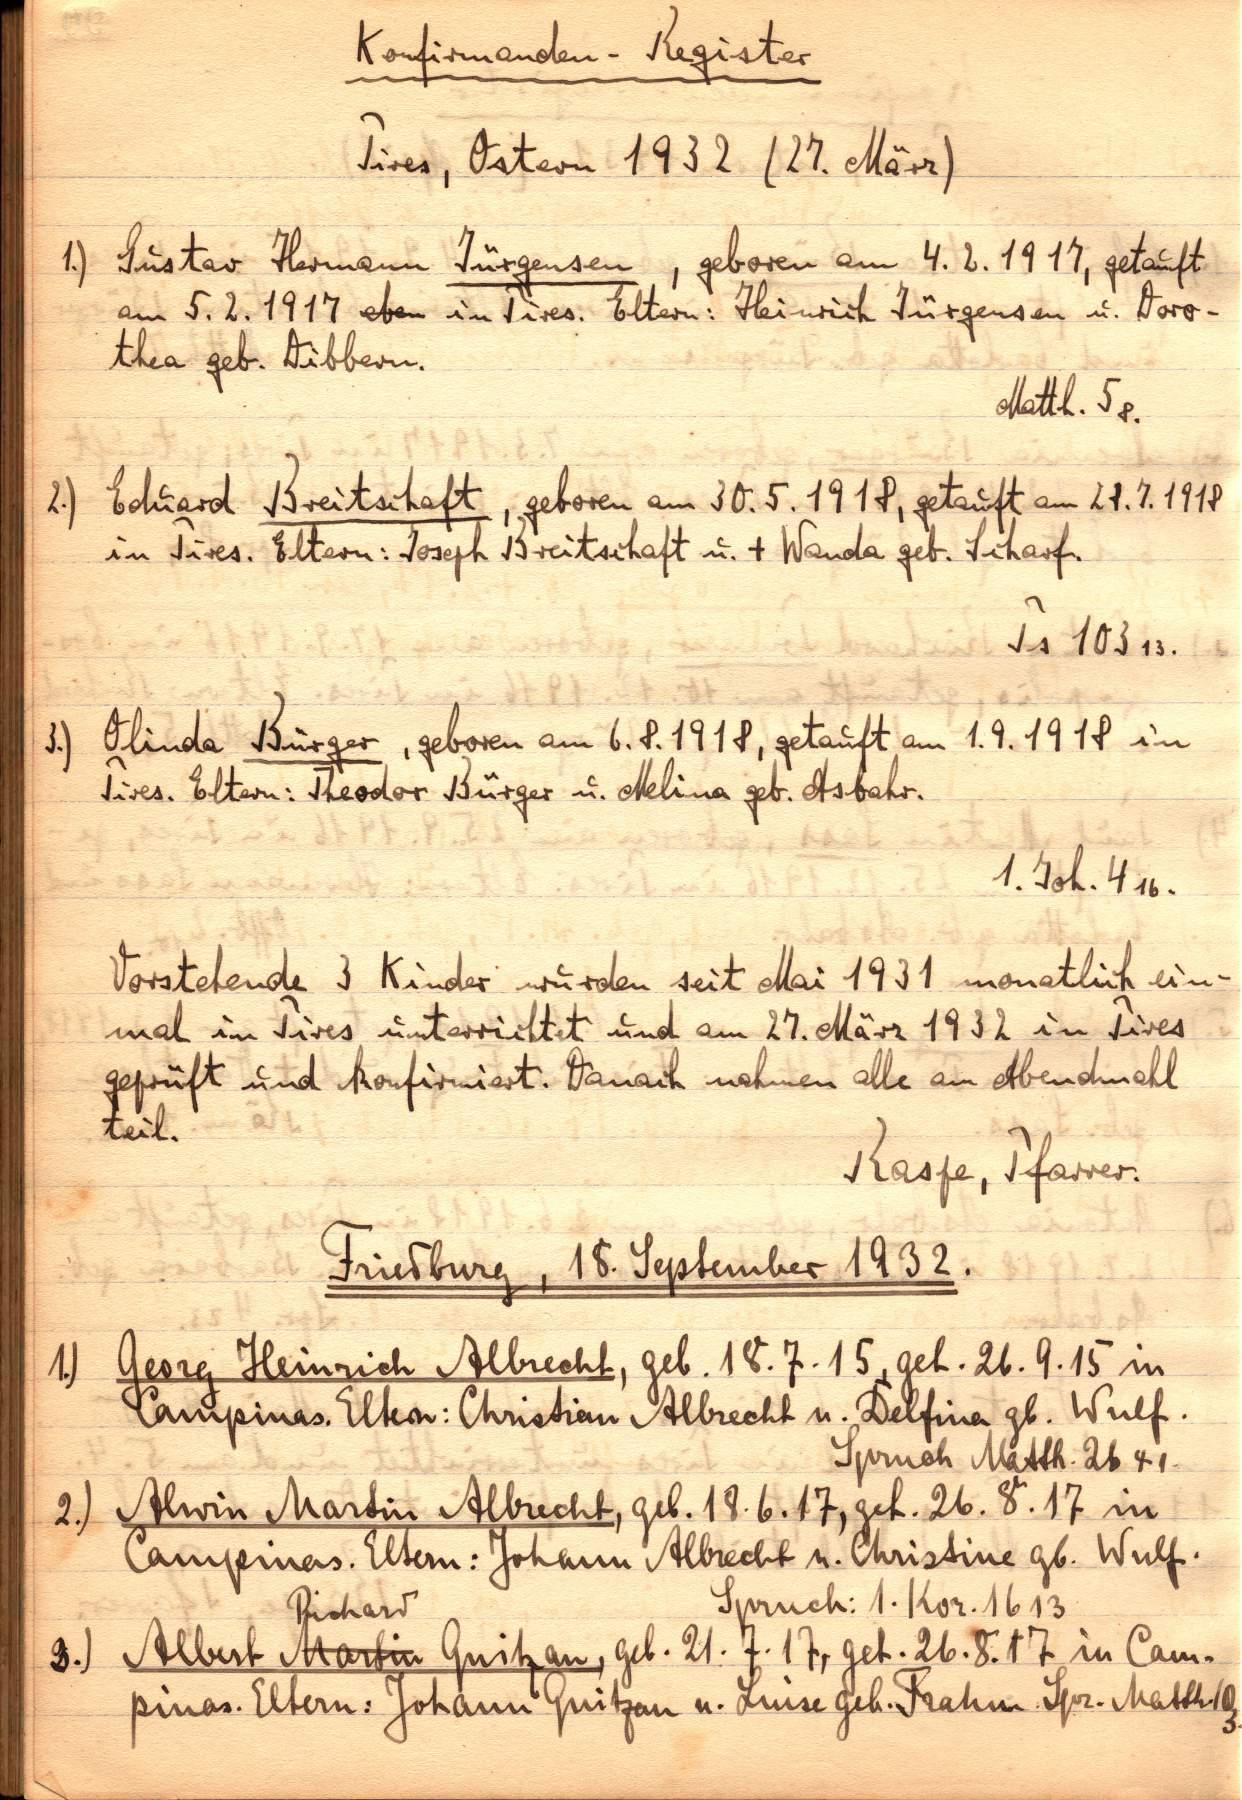 Konfirmanden-Register
Pires, Ostern 1932 (27. März)
1.) Gustav Hermann Jürgensen, geboren am 4.2.1917, getauft
am 5.2.1917 eben in Pires. Eltern: Heinrich Jürgensen u. Doro-
thea geb. Dibbern.
Matth. 5 8.
2.) Eduard Breitschaft, geboren am 30.5.1918, getauft am 28.7.1918
in Pires. Eltern: Joseph Breitschaft u. + Wanda geb. Scharf.
Ps 103 13.
3.) Olinda Bürger, geboren am 6.8.1918, getauft am 1.9.1918 in
Pires. Eltern: Theodor Bürger u. Melina geb. Asbahr.
1. Joh. 4 16.
Vorstehende 3 Kinder wurden seit Mai 1931 monatlich ein-
mal in Pires unterrichtet und am 27. März 1932 in Pires
geprüft und konfirmiert. Danach nahmen alle am Abendmahl
teil.
Raspe, Pfarrer.
Friedburg, 18. September 1932.
1.) Georg Heinrich Albrecht, geb. 18.7.15, get. 26.9.15 in
Campinas. Eltern: Christian Albrecht u. Delfina gb. Wulf.
Spruch Matth. 26 41.
2.) Alwin Martin Albrecht, geb. 18.6.17, get. 26.8.17 in
Campinas. Eltern: Johann Albrecht u. Christine gb. Wulf.
Spruch: 1. Kor. 16 13
Richard
3.) Albert Martin Quitzau, geb. 21.7.17, get. 26.8.17 in Cam-
pinas. Eltern: Johann Quitzau u. Luise geb. Frahm. Spr. Matth. 10